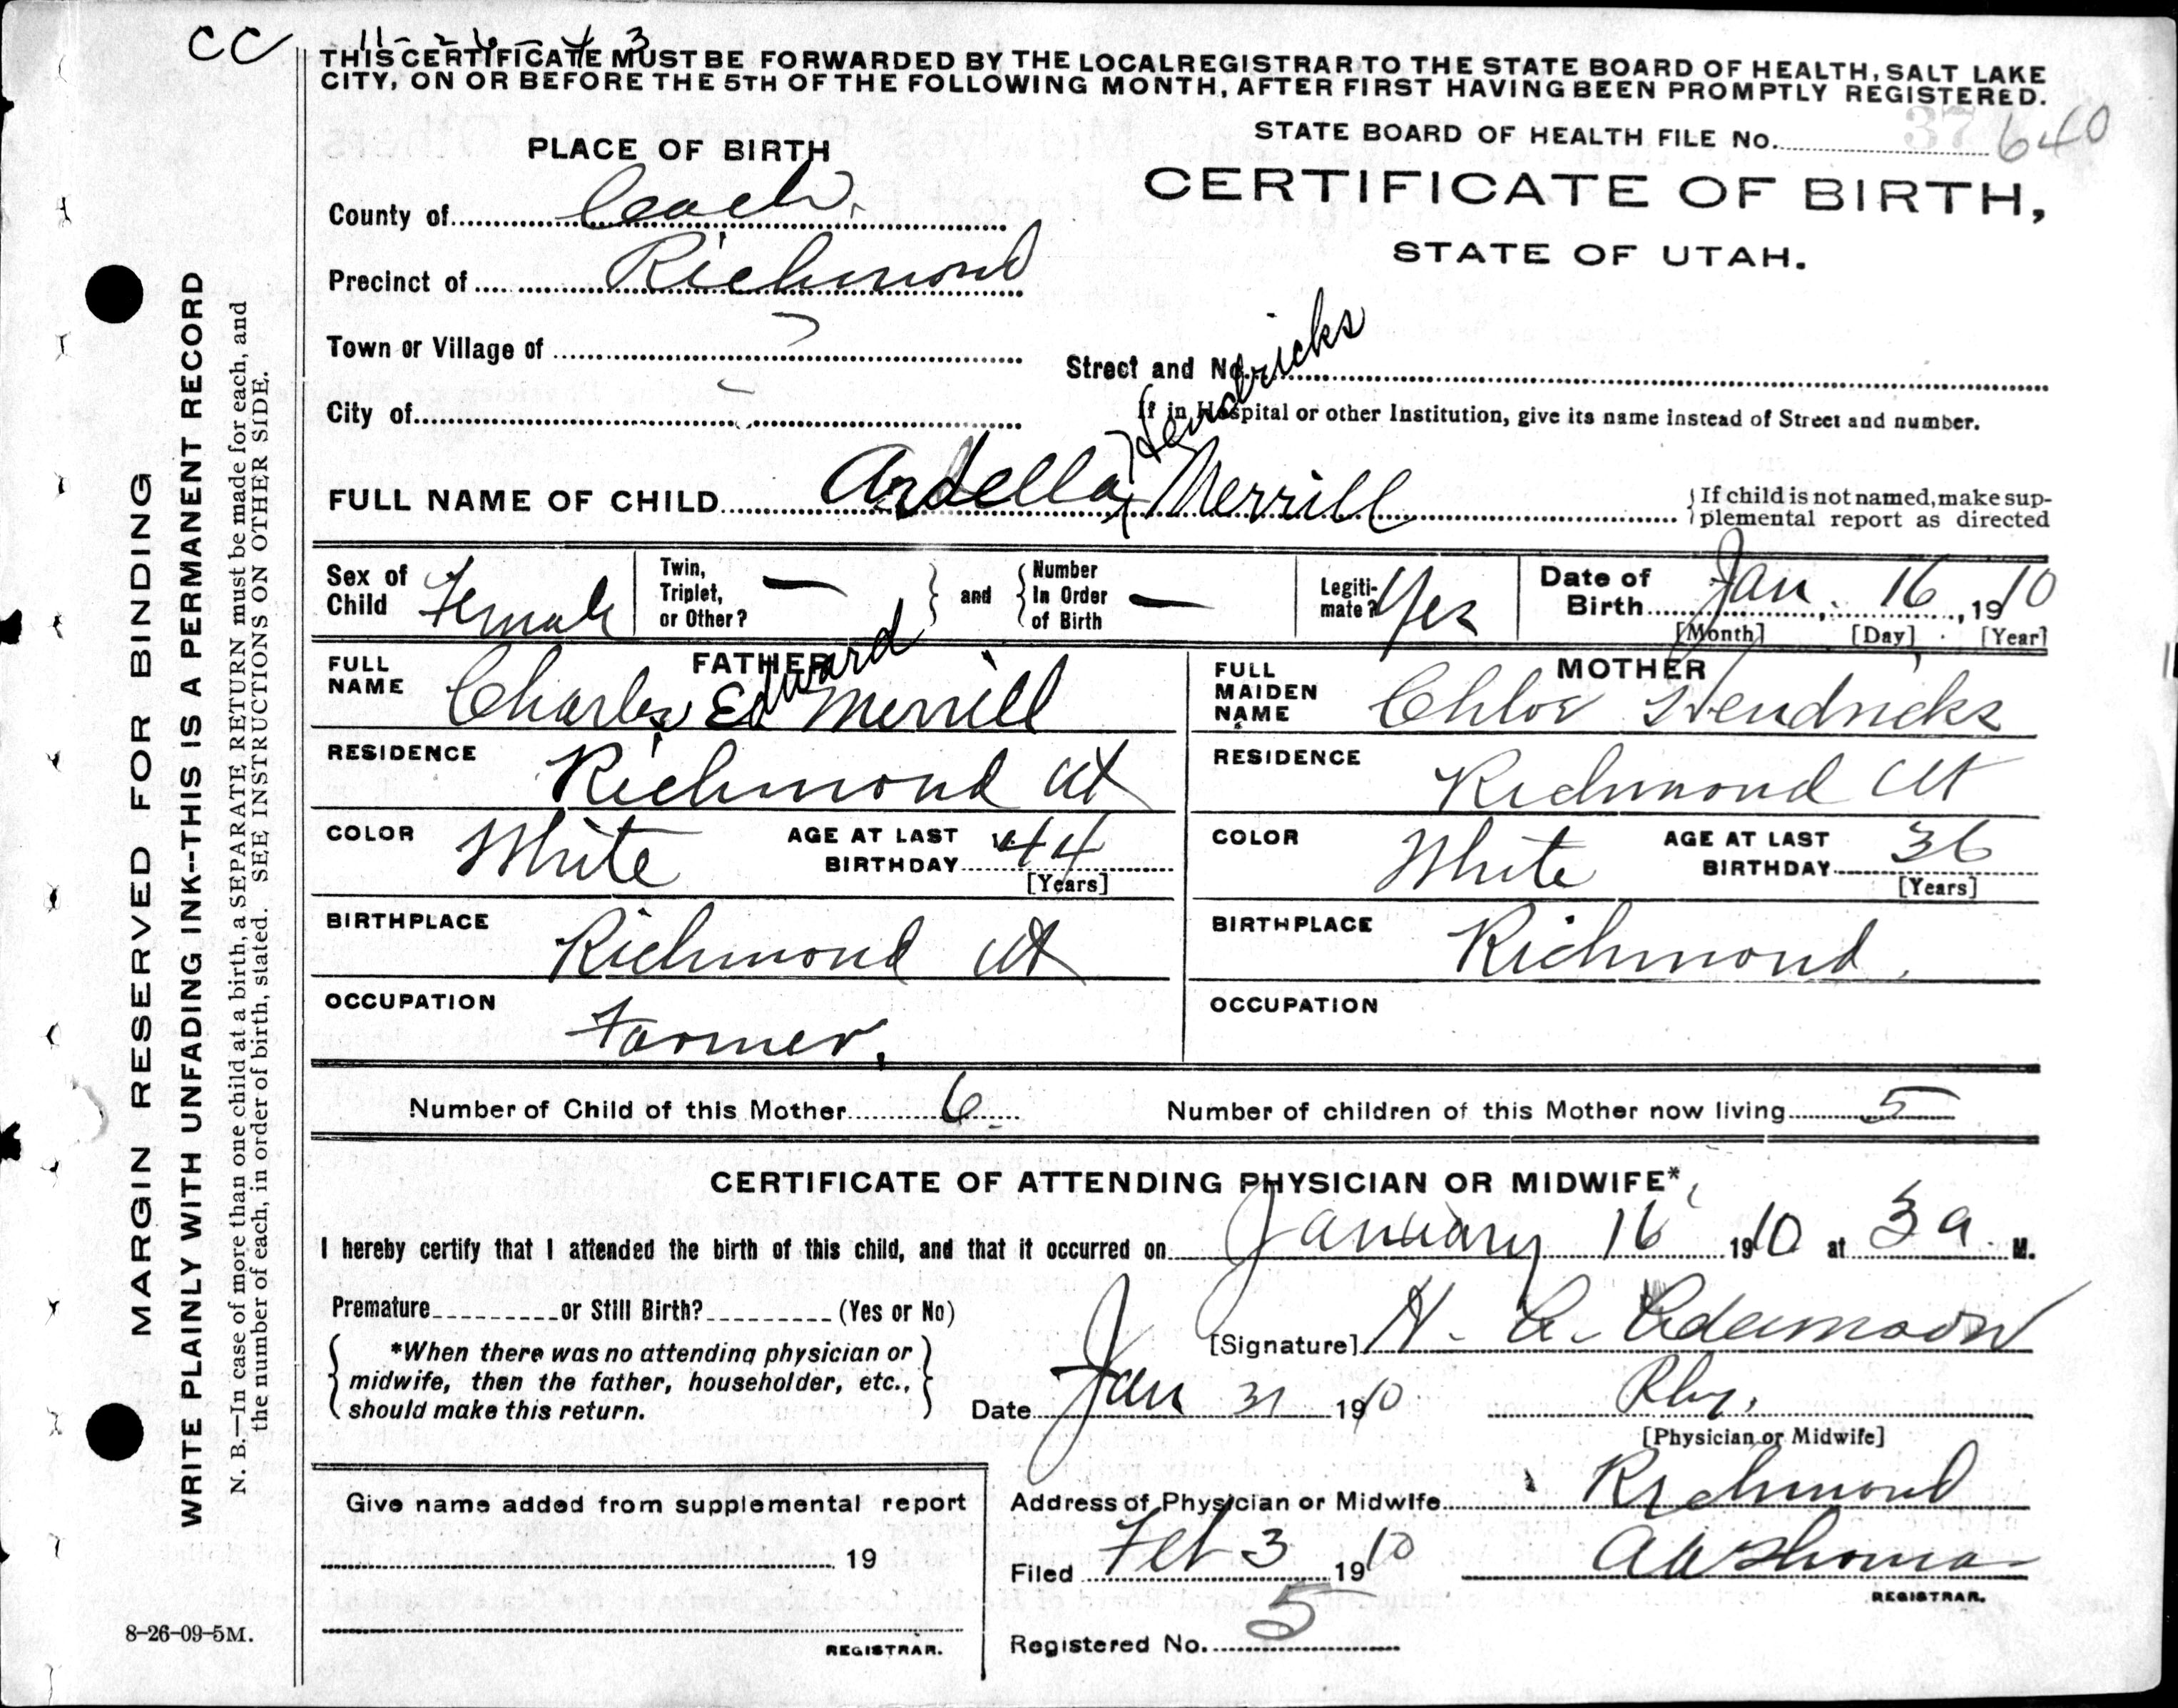 CC 11-26-43
THIS CERTIFICATE MUST BE FORWARDED BY THE LOCAL REGISTRAR TO THE STATE BOARD OF HEALTH, SALT LAKE
CITY, ON OR BEFORE THE 5TH OF THE FOLLOWING MONTH, AFTER FIRST HAVING BEEN PROMPTLY REGISTERED.
STATE BOARD OF HEALTH FILE No. 37 640
PLACE OF BIRTH
CERTIFICATE OF BIRTH,
STATE OF UTAH.
County of Cach.
Precinct of Richmond
Town or Village of
Street and No.
City of
If in Hospital or other Institution, give its name instead of Street and number.
Hendricks
FULL NAME OF CHILD Ardella Merrill
If child is not named, make sup-
plemental report as directed
Sex of Child Female
Twin, Triplet, or Other? —
and
Number In Order of Birth —
Legiti-mate? Yes
Date of Birth Jan. 16, 1910
[Month] [Day] [Year]
FATHER
FULL NAME Charles Edward Merrill
RESIDENCE Richmond Ut
COLOR White
AGE AT LAST BIRTHDAY 44
[Years]
BIRTHPLACE Richmond Ut
OCCUPATION Farmer.
MOTHER
FULL MAIDEN NAME Chloe Hendricks
RESIDENCE Richmond Ut
COLOR White
AGE AT LAST BIRTHDAY 36
[Years]
BIRTHPLACE Richmond.
OCCUPATION
Number of Child of this Mother 6
Number of children of this Mother now living 5
CERTIFICATE OF ATTENDING PHYSICIAN OR MIDWIFE*
I hereby certify that I attended the birth of this child, and that it occurred on January 16 1910 at 3 a. M.
Premature or Still Birth? (Yes or No)
[Signature] H. C. Adamson
*When there was no attending physician or
midwife, then the father, householder, etc.,
should make this return.
Date Jan 31 1910
Phy.
[Physician or Midwife]
Address of Physician or Midwife Richmond
Give name added from supplemental report
19
REGISTRAR.
Filed Feb 3 1910
A W Thomas
REGISTRAR.
Registered No. 5
8-26-09-5M.
MARGIN RESERVED FOR BINDING
WRITE PLAINLY WITH UNFADING INK--THIS IS A PERMANENT RECORD
N. B.—In case of more than one child at a birth, a SEPARATE RETURN must be made for each, and
the number of each, in order of birth, stated. SEE INSTRUCTIONS ON OTHER SIDE.